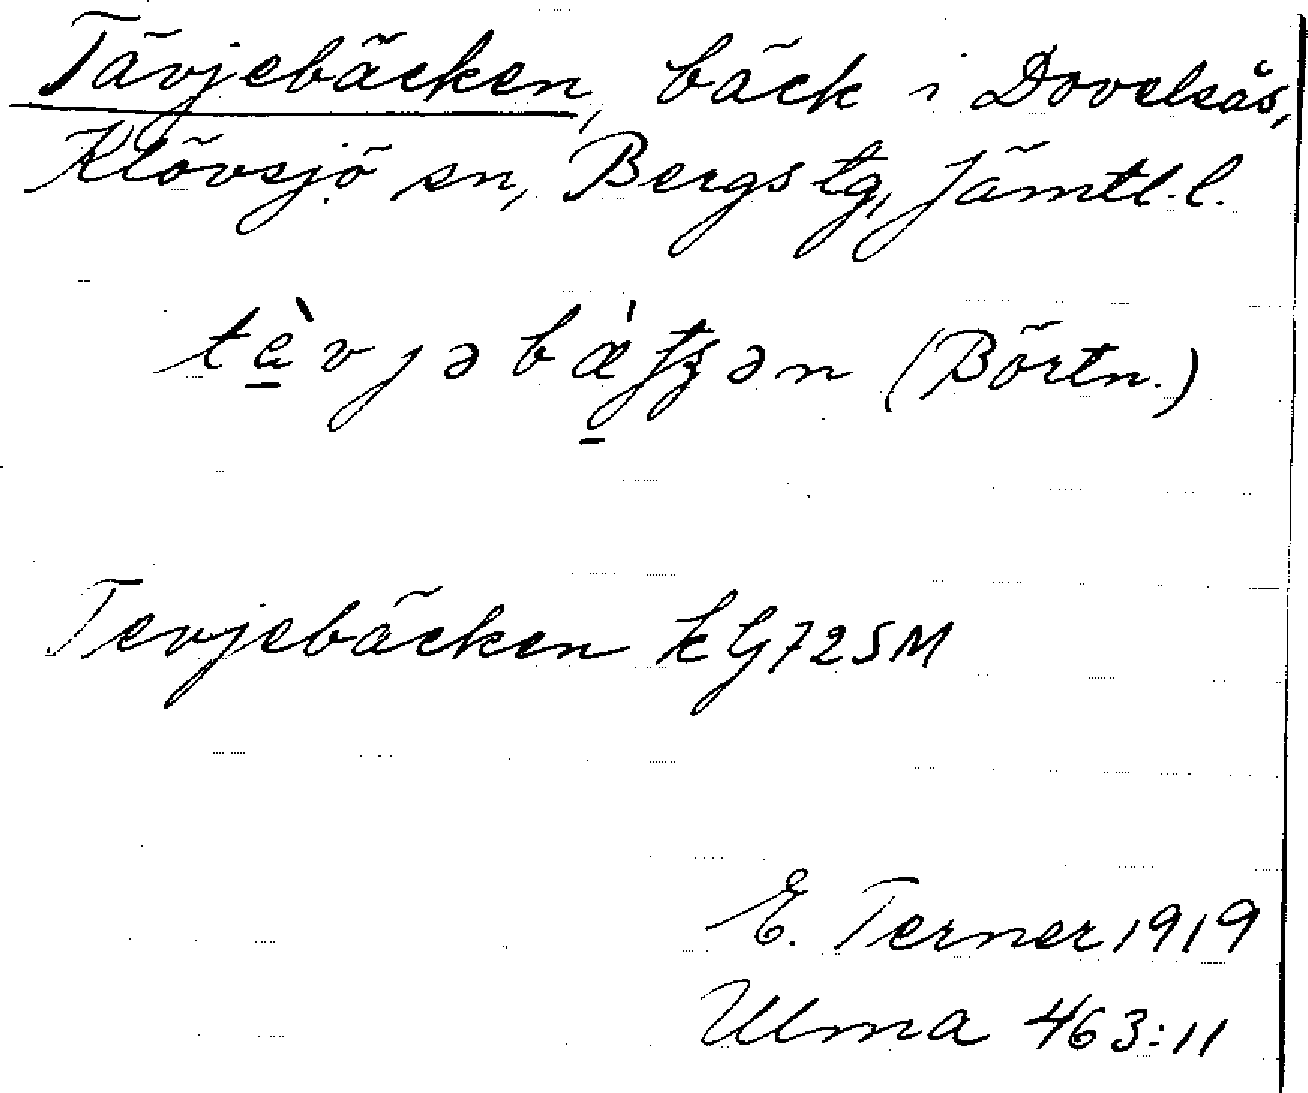 Tävjebäcken, bäck i Dovelsås,
Klövsjö sn, Bergs tg, Jämtl.l.
(Börtn.)
Tevjebäcken kG72SM
E. Terner 1919
Ulma 463:11